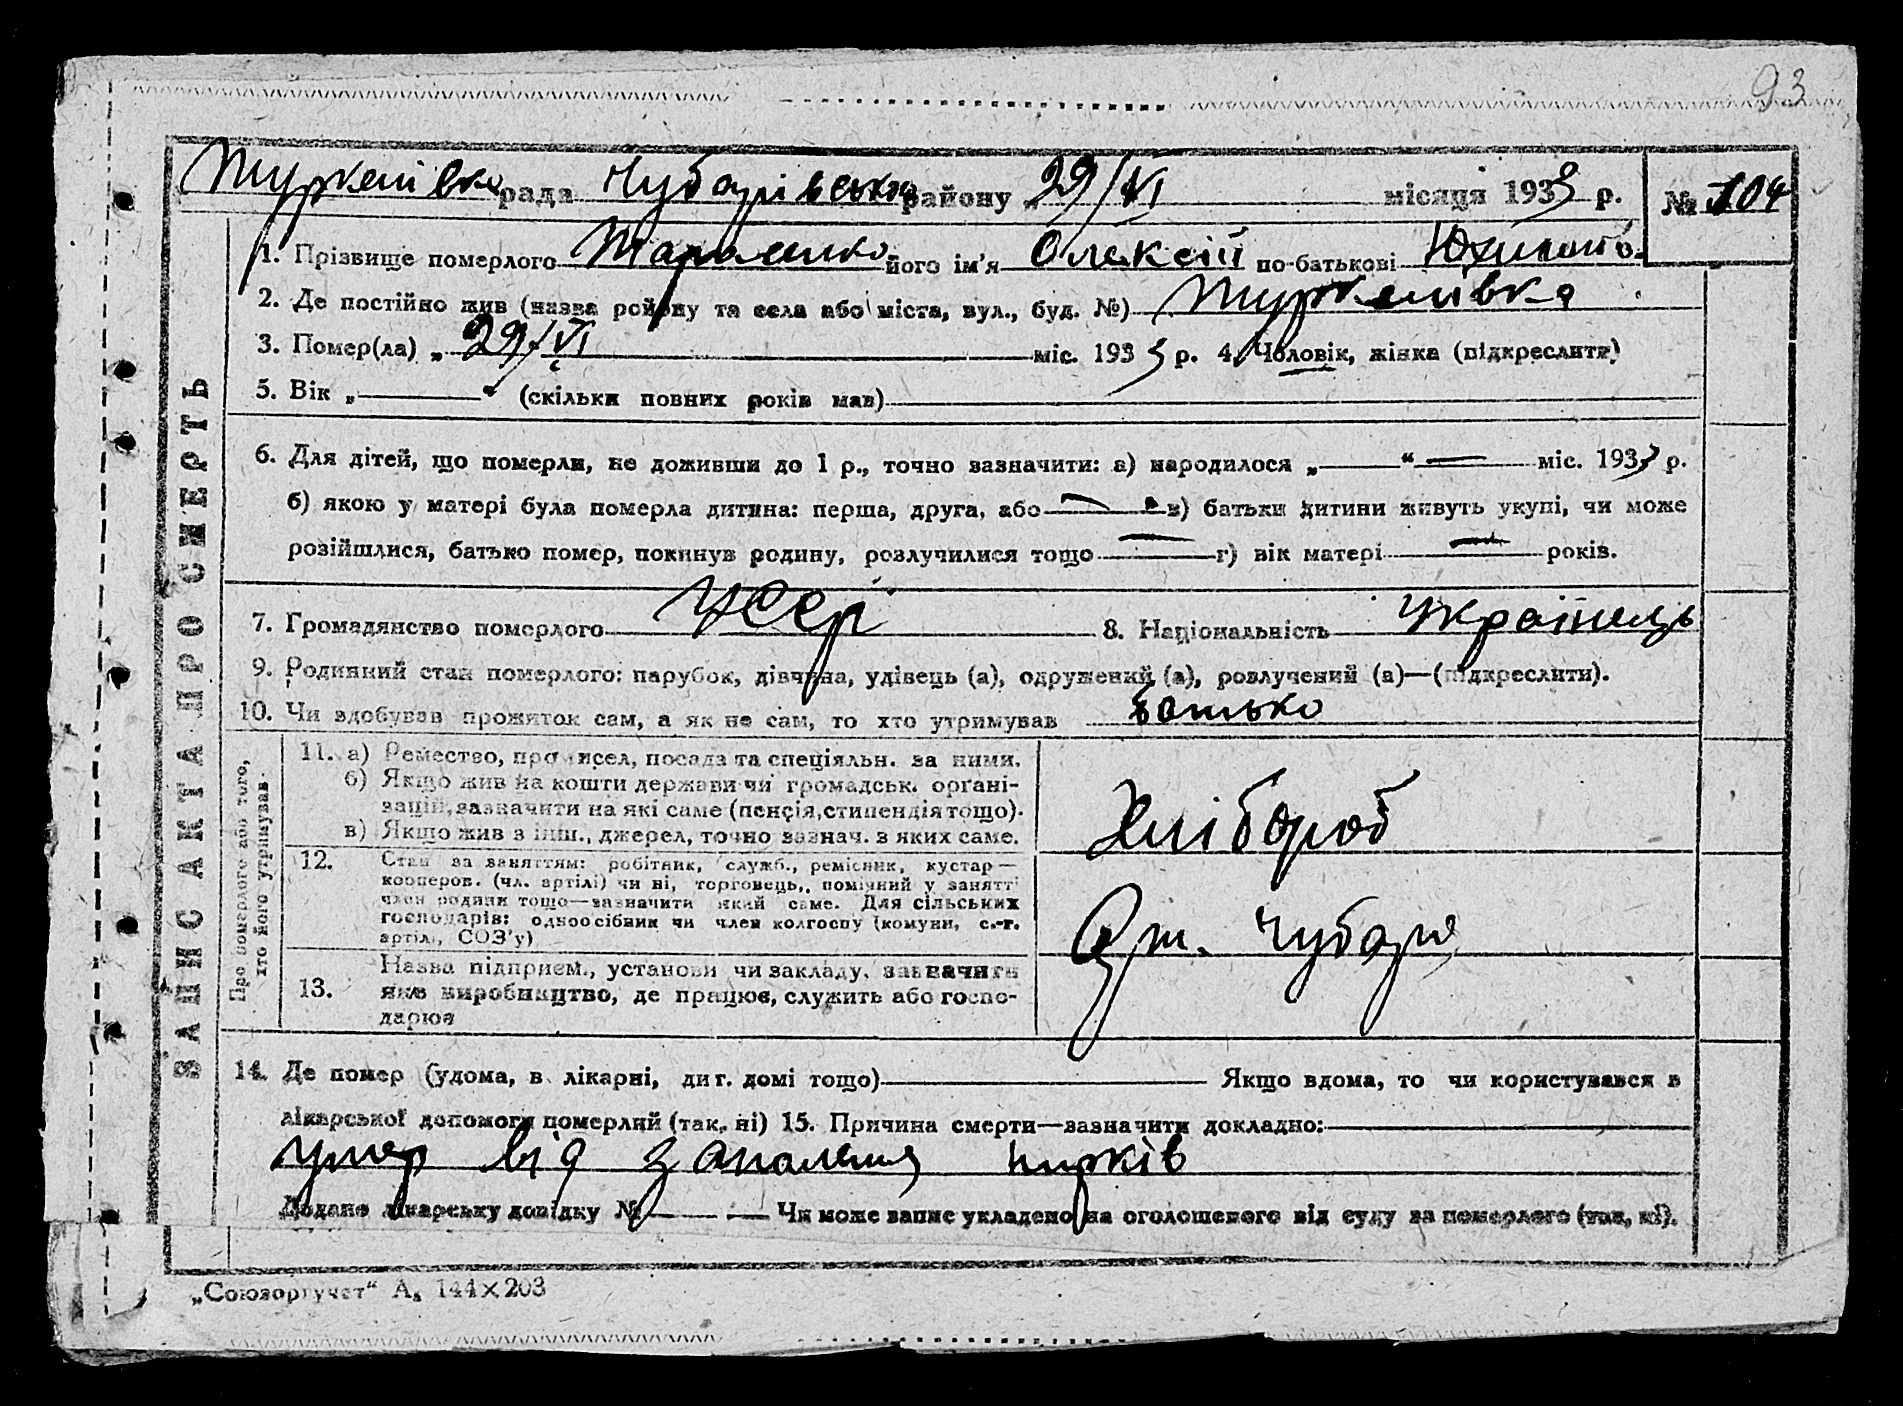 93
Туркенівка рада Чубарівського району „ 29/VI місяця 1933 р. № 104
1. Прізвище померлого Тараненко його ім'я Олексій по-батькові
2. Де постійно жив (назва району та села або міста, вул., буд. №) Туркенівка
3. Помер(ла) „ 29/VI міс. 1933 р. 4. Чоловік, жінка (підкреслити)
5. Вік „ “ (скільки повних років мав)
6. Для дітей, що померли, не доживши до 1 р., точно зазначити: а) народилося „ — “ — міс. 193 р.
б) якою у матері була померла дитина: перша, друга, або — в) батьки дитини живуть укупі, чи може
розійшлися, батько помер, покинув родину, розлучилися тощо — г) вік матері — років.
7. Громадянство померлого УССР 8. Національність Українець
9. Родинний стан померлого: парубок, дівчина, удівець (а), одружений (а), розлучений (а)—(підкреслити).
10. Чи здобував прожиток сам, а як не сам, то хто утримував батько
ЗАПИС АКТА ПРО СМЕРТЬ
Про померлого або того,
хто його утримував.
11. а) Ремество, промисел, посада та спеціяльн. за ними.
б) Якщо жив на кошти держави чи громадськ. органі-
зацій, зазначити на які саме (пенсія, стипендія тощо).
в) Якщо жив з інш., джерел, точно зазнач. з яких саме.
Хлібороб
12. Стан за заняттям: робітник, служб., ремісник, кустар —
кооперов. (чл. артілі) чи ні, торговець,, помічний у занятті
член родини тощо—зазначити який саме. Для сільських
господарів: одноосібник чи член колгоспу (комуни, с.-г.
артілі, СОЗ'у)
Арт. Чубаря
13. Назва підприєм., установи чи закладу, зазначити
яке виробництво, де працює, служить або госпо-
дарює
14. Де помер (удома, в лікарні, дит. домі тощо) Якщо вдома, то чи користувався з
лікарської допомоги померлий (так, ні) 15. Причина смерти—зазначити докладно:
умер від запалення нирків
Додано лікарську довідку № — — Чи може запис укладено на оголошеного від суду за померлого (так, ні).
„Союзоргучет“ А₅ 144×203